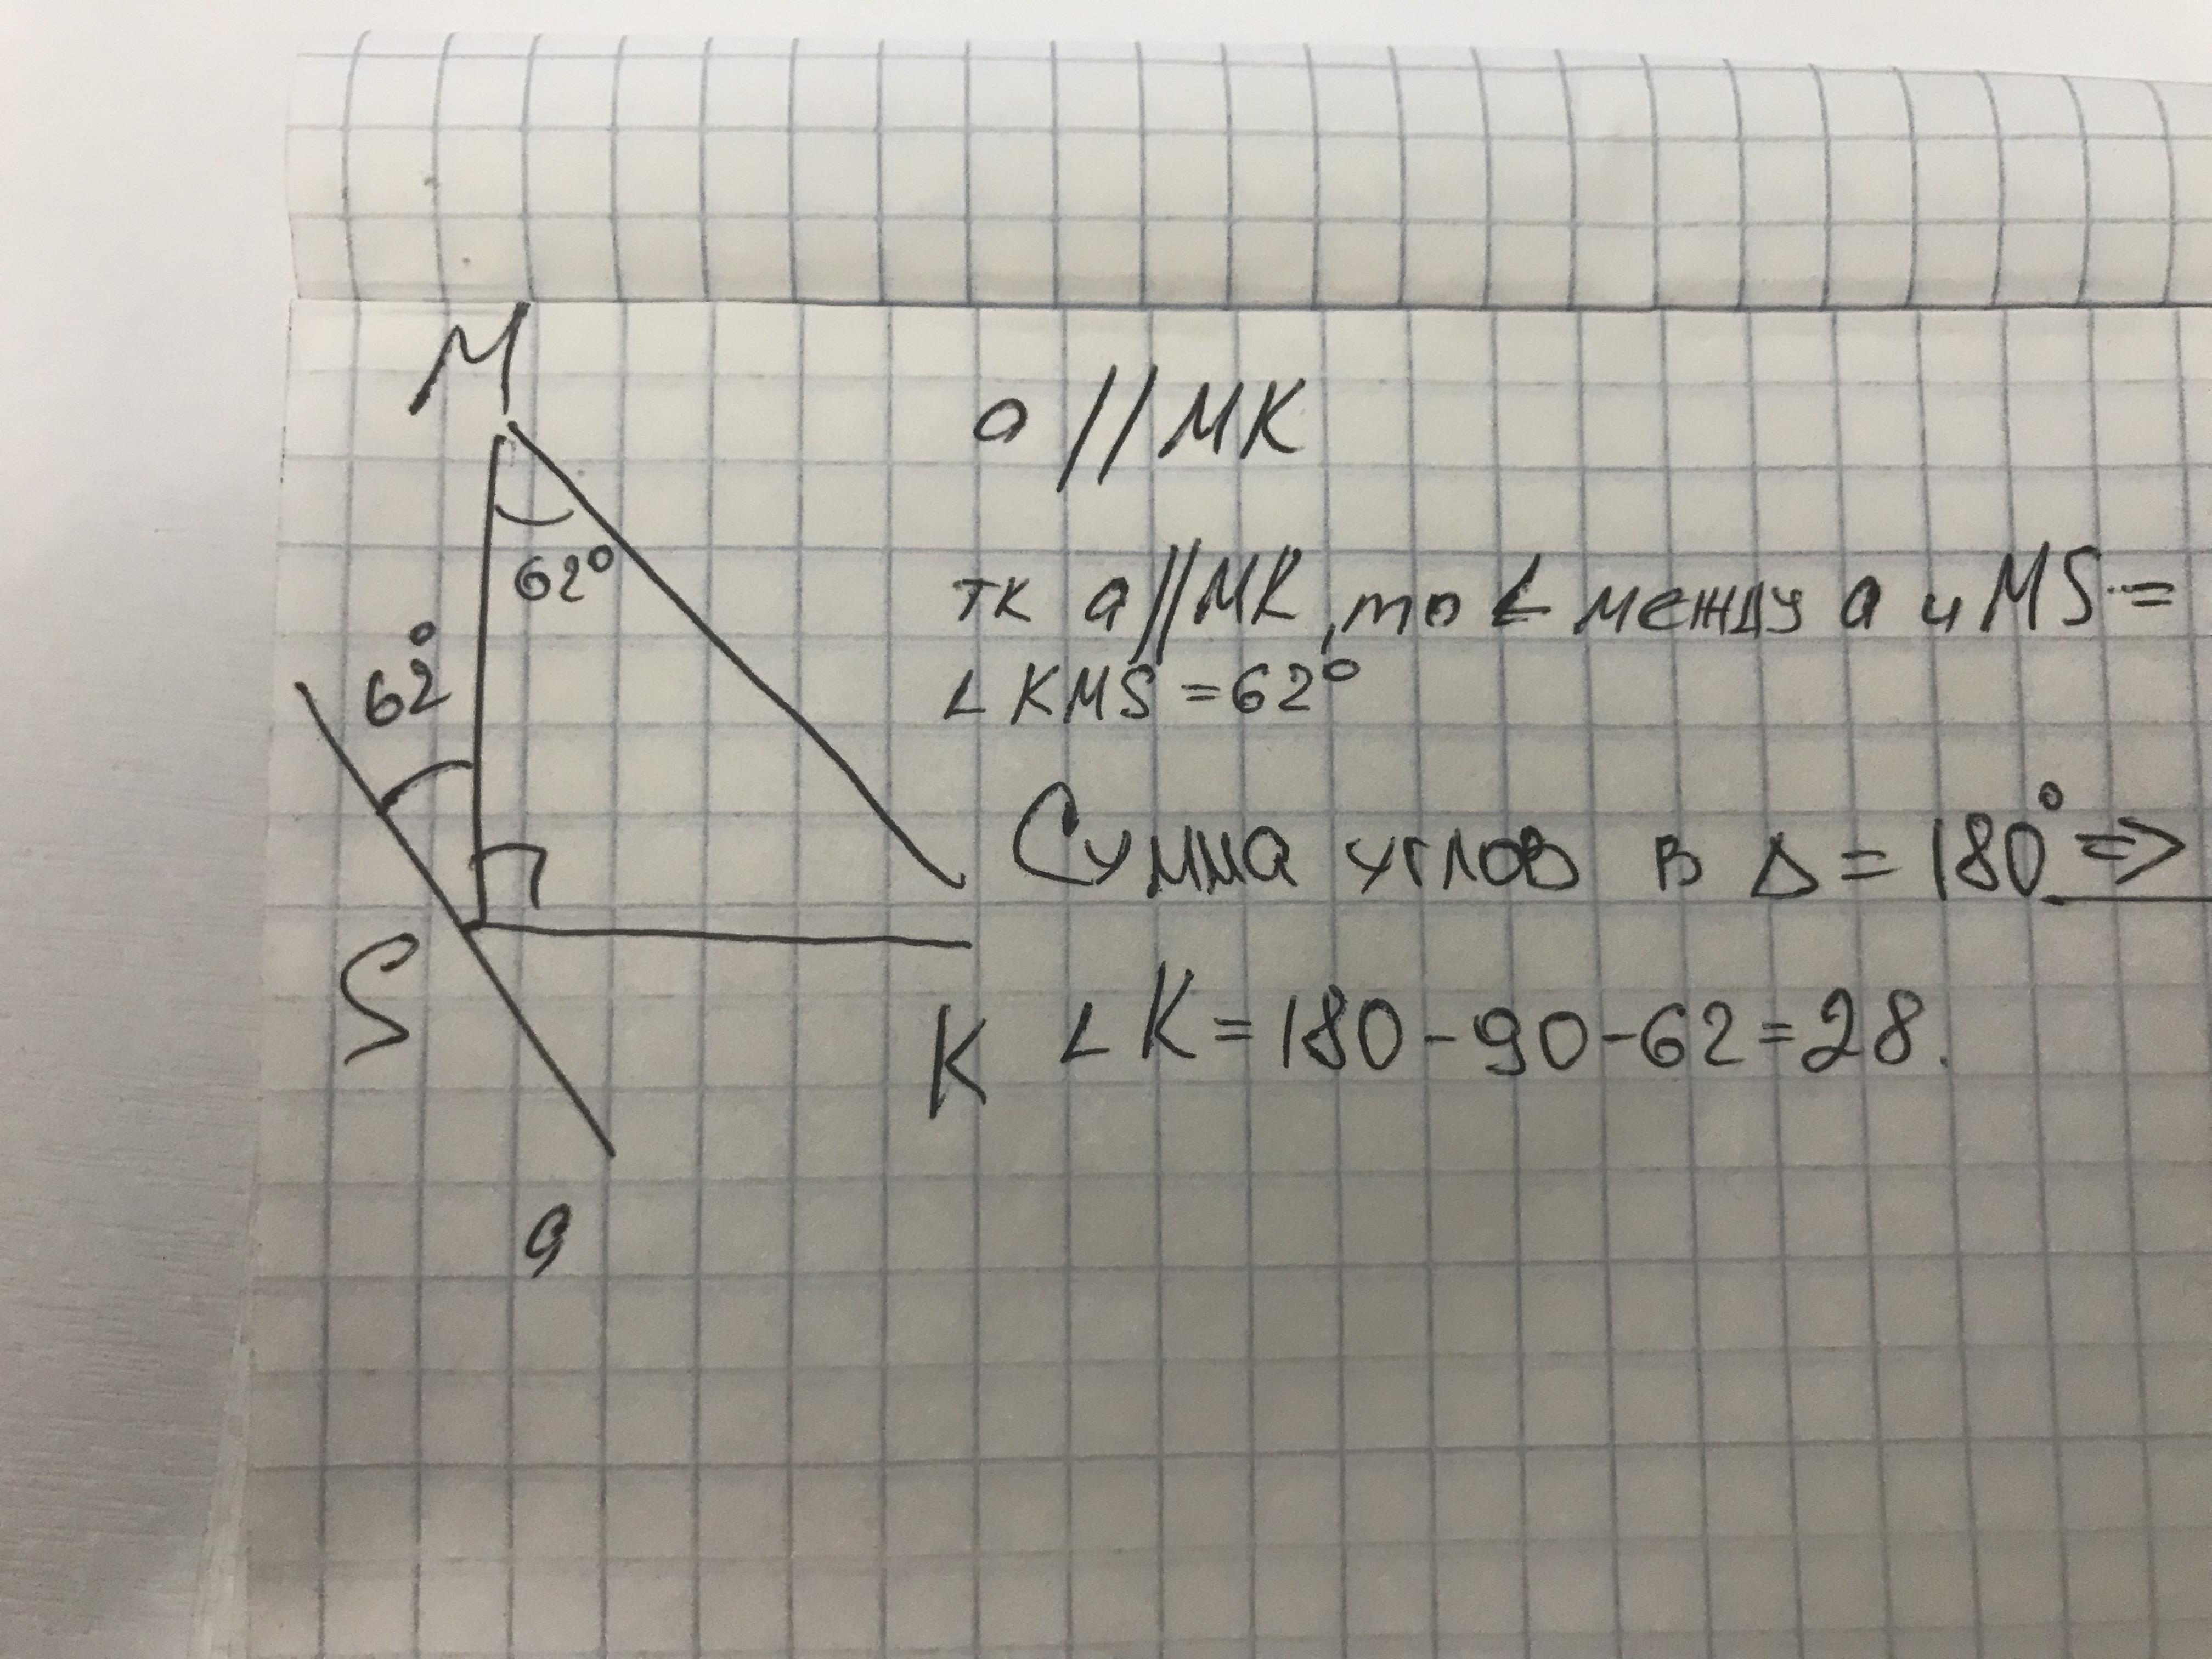 M
a // MK
62°
тк a//MK, то ∠ между a и MS =
62°
∠ KMS = 62°
Сумма углов в Δ = 180° =>
S
K ∠K = 180 - 90 - 62 = 28.
a